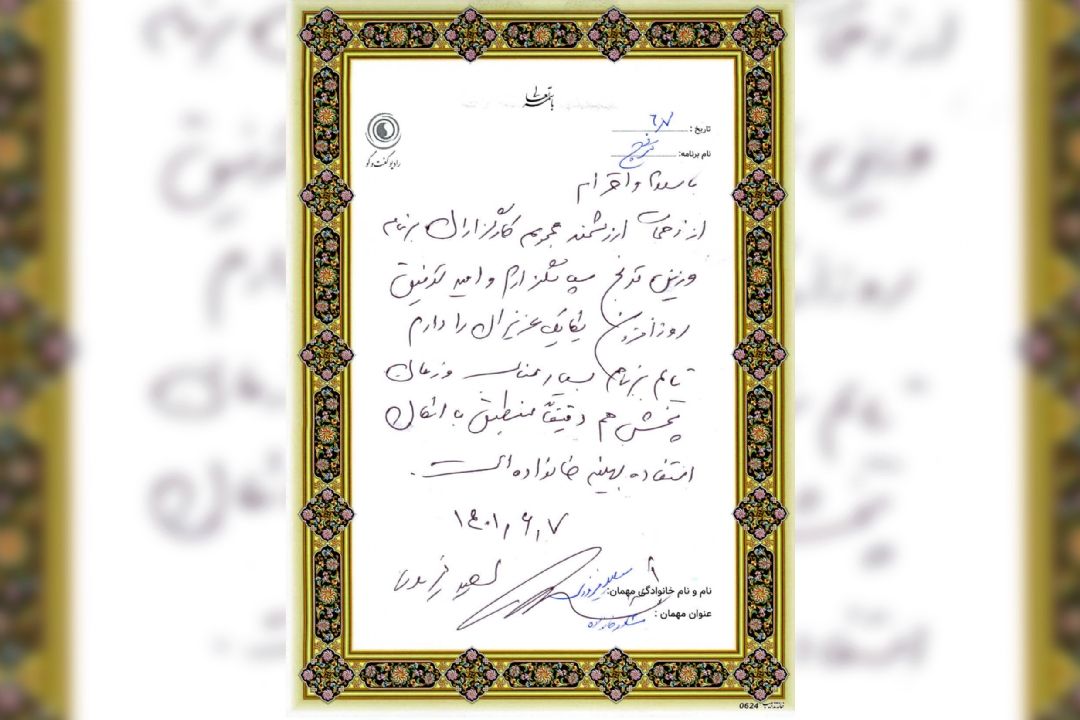 باسمه تعالی
تاریخ : ۶/۷
نام برنامه: ترنج
رادیو گفت و گو
با سلام و احترام
از زحمات ارزشمند عموم کارگزاران برنامه
وزین ترنج سپاسگزارم و امید توفیق
روزافزون یکایک عزیزان را دارم
تایم برنامه بسیار مناسب و زمان
پخش هم دقیقاً منطبق با امکان
استفاده بهینه خانواده است.
۱۴۰۱/۶/۷
سعید
نام و نام خانوادگی مهمان: سعید
عنوان مهمان : مشاور خانواده
0624